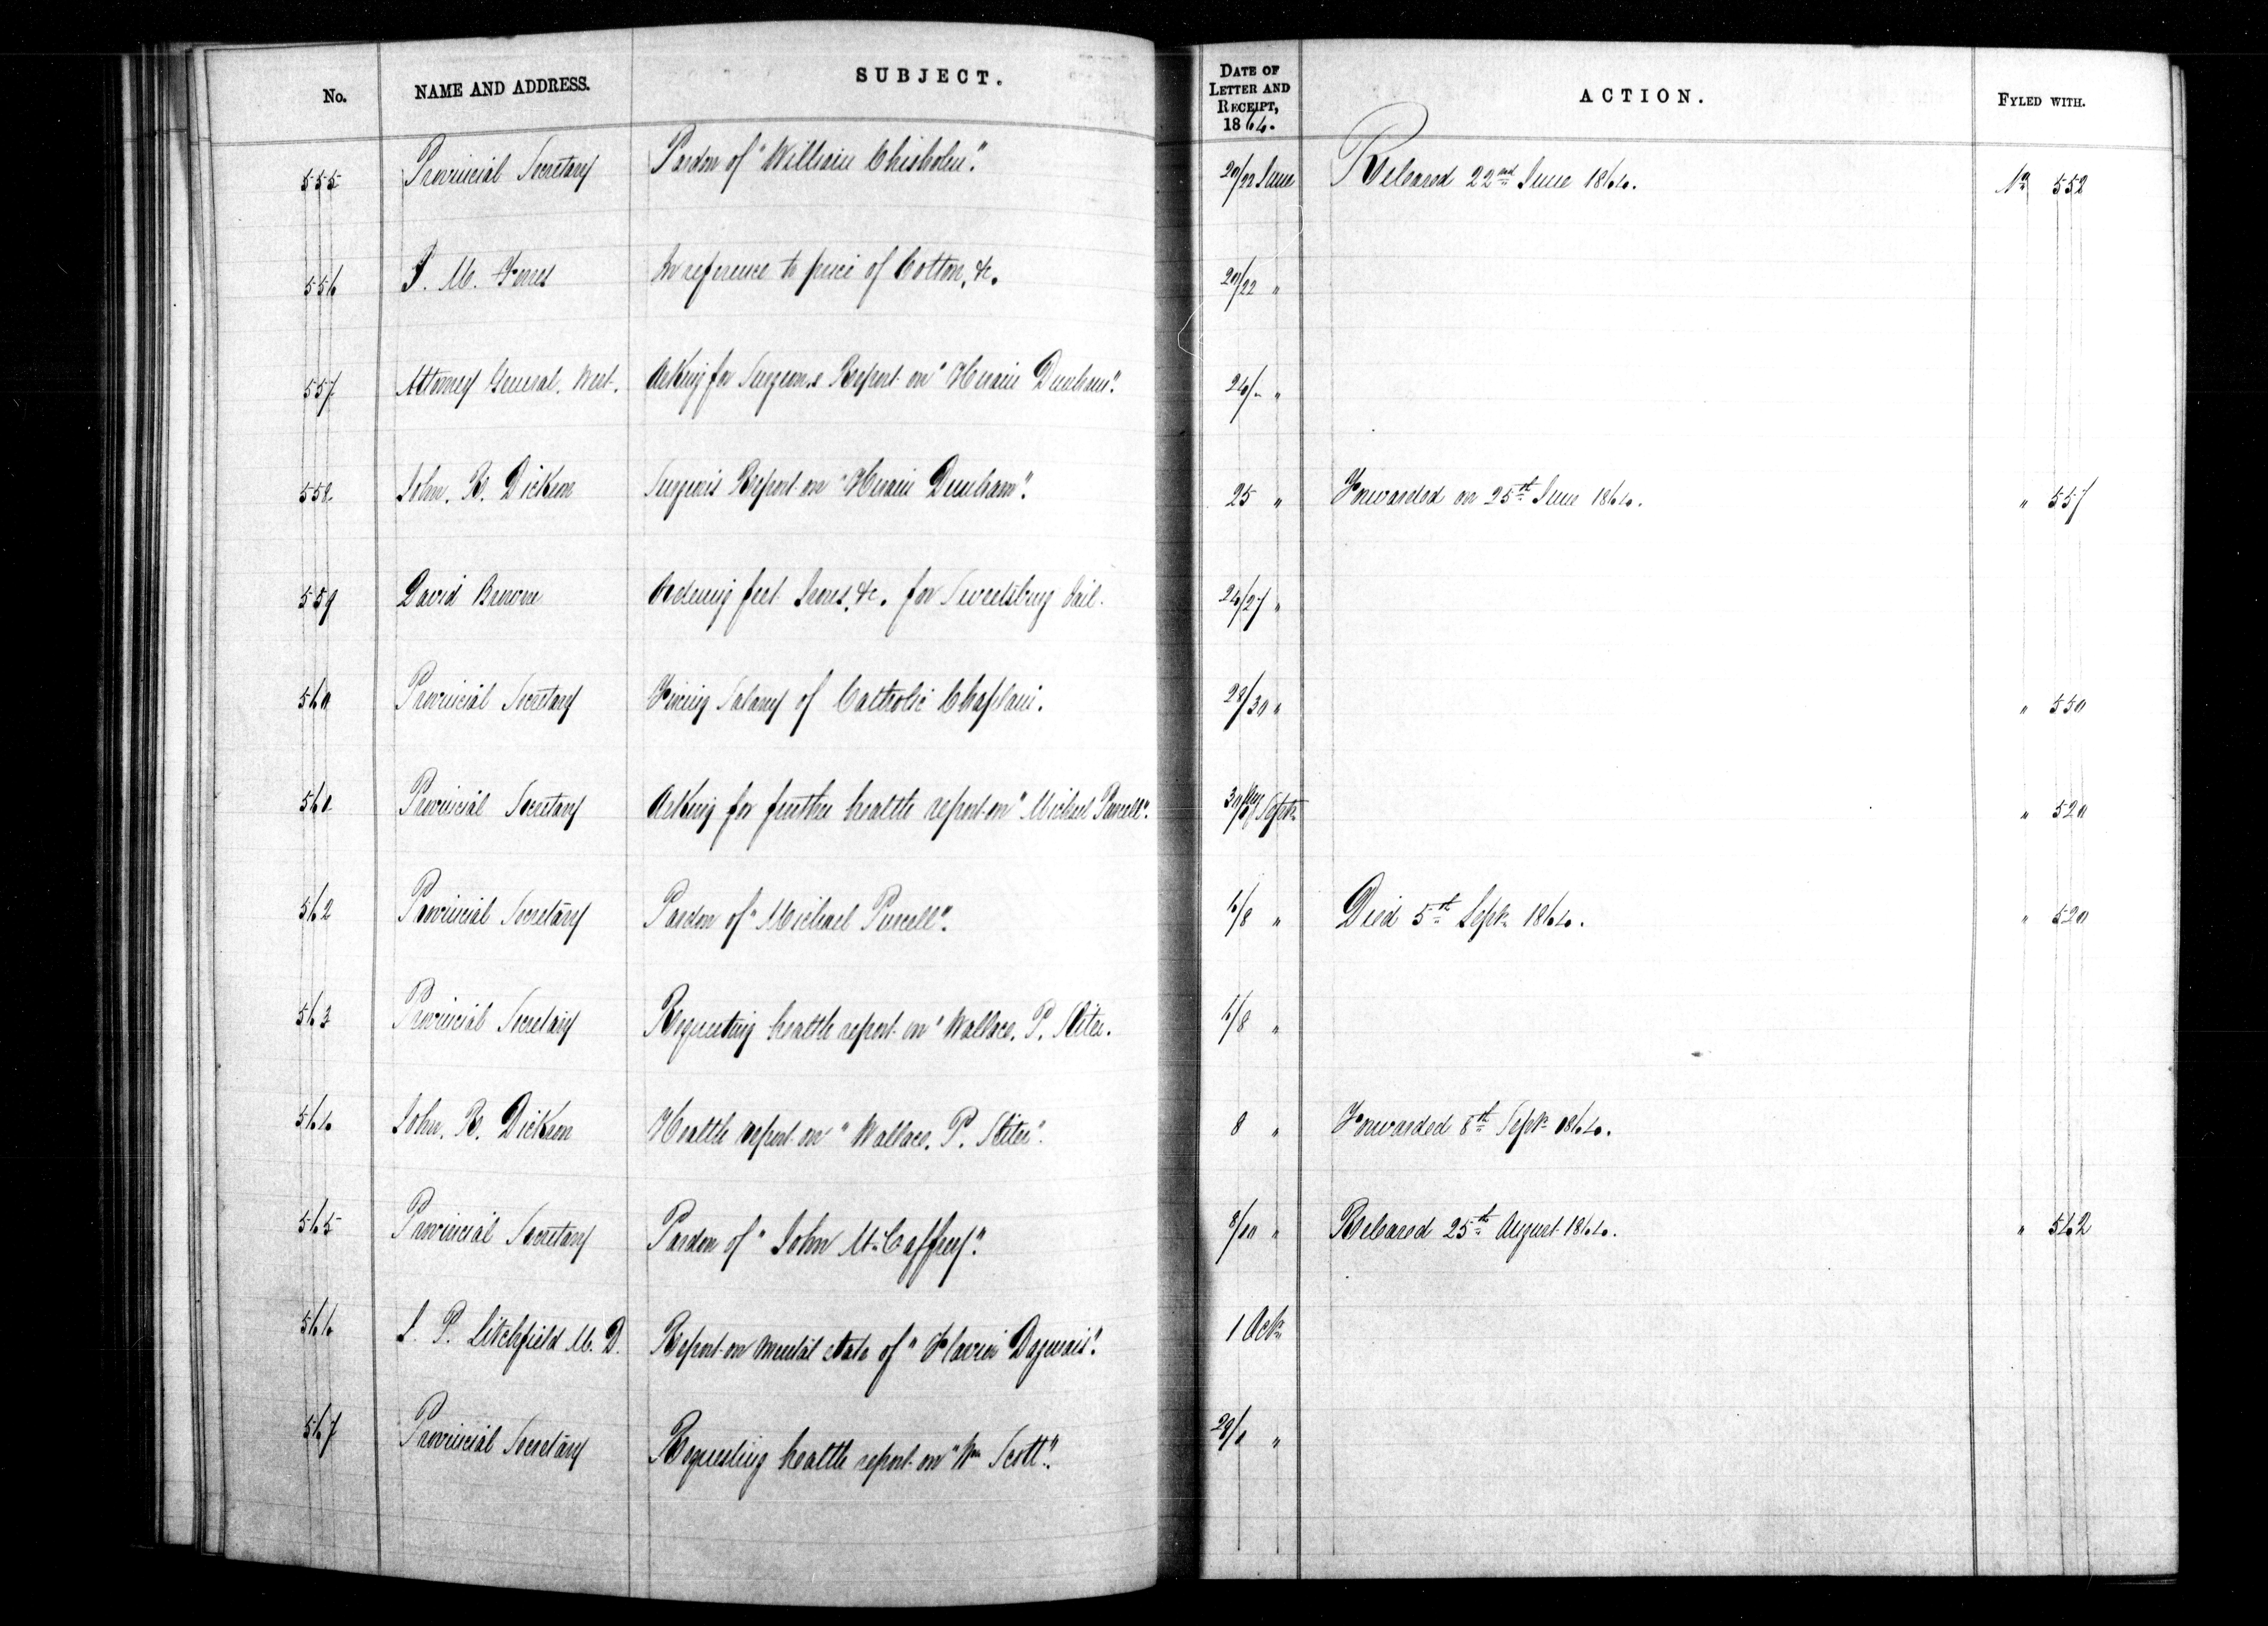 No. NAME AND ADDRESS. SUBJECT. DATE OF LETTER AND RECEIPT, 1864. ACTION. FYLED WITH.
555 Provincial Secretary Pardon of "William Chisholm". 20/22 June Released 22nd June 1864. No 552
556 J. M. Jones In reference to price of Cotton, &c. 20/22 "
557 Attorney General. West. Asking for Surgeons Report on "Hiram Dunham". 24/- "
558 John. R. Dickson Surgeons Report on "Hiram Dunham". 25 " Forwarded on 25th June 1864. " 557
559 David Browne Ordering feet Irons, &c. for Sweetsburg Jail. 24/27 "
560 Provincial Secretary Fixing Salary of Catholic Chaplain. 28/30 " " 550
561 Provincial Secretary Asking for further health report on "Michael Purcell". Sept. " 520
562 Provincial Secretary Pardon of "Michael Purcell". 6/8 " Died 5th Sept. 1864. " 520
563 Provincial Secretary Requesting health report on "Wallace. P. 6/8 "
564 John. R. Dickson Health report on "Wallace. P. 8 " Forwarded 8th Sept 1864.
565 Provincial Secretary Pardon of "John McCaffrey". 8/10 " Released 25th August 1864. " 562
566 J. P. Litchfield M. D. Report on mental state of "Flavien 1 Oct.
567 Provincial Secretary Requesting health report on "Wm Scott". "